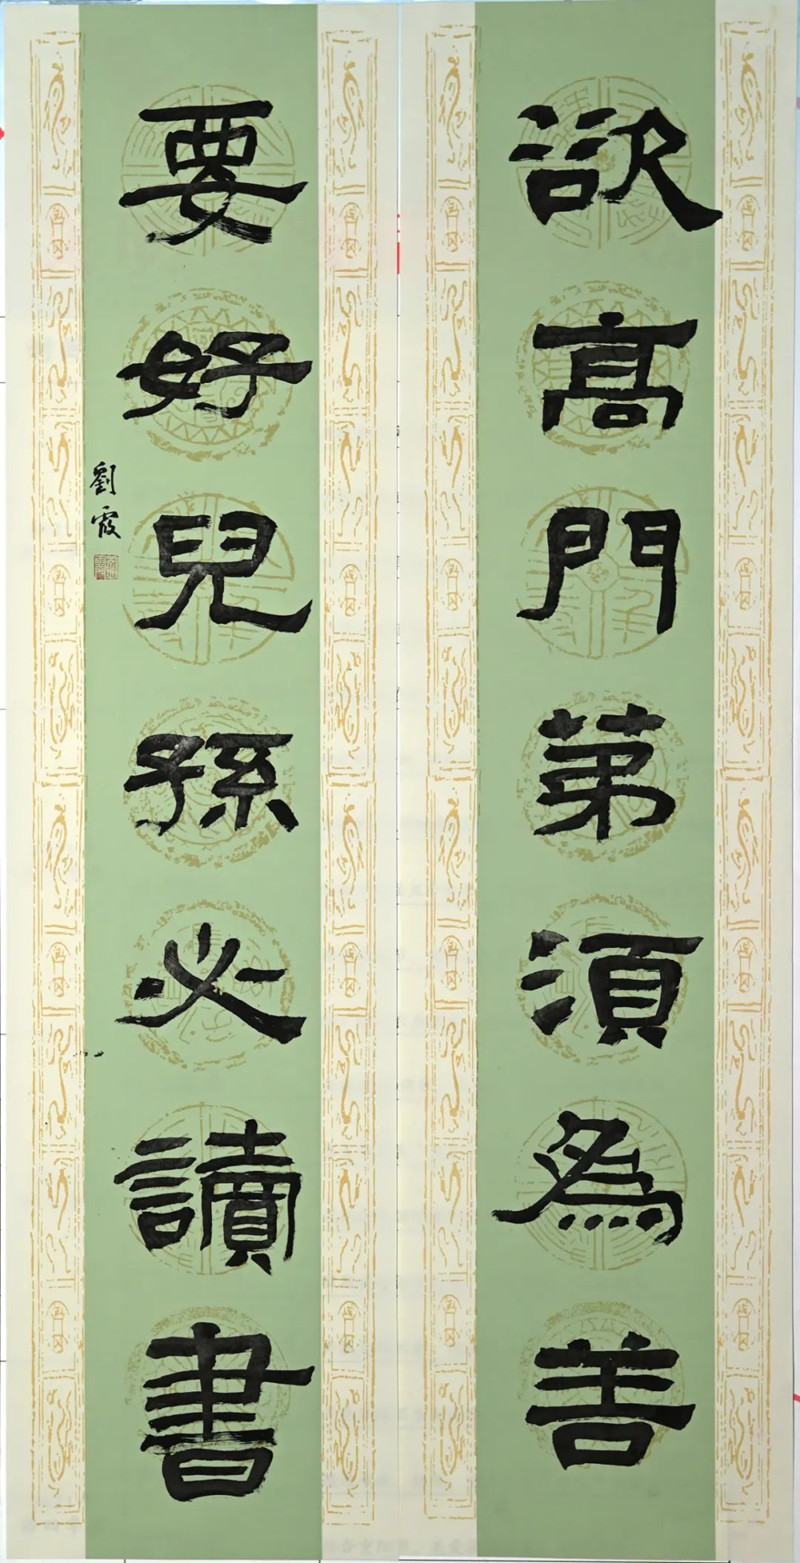 欲高門苐須為善
要好兒孫必讀書
劉霞